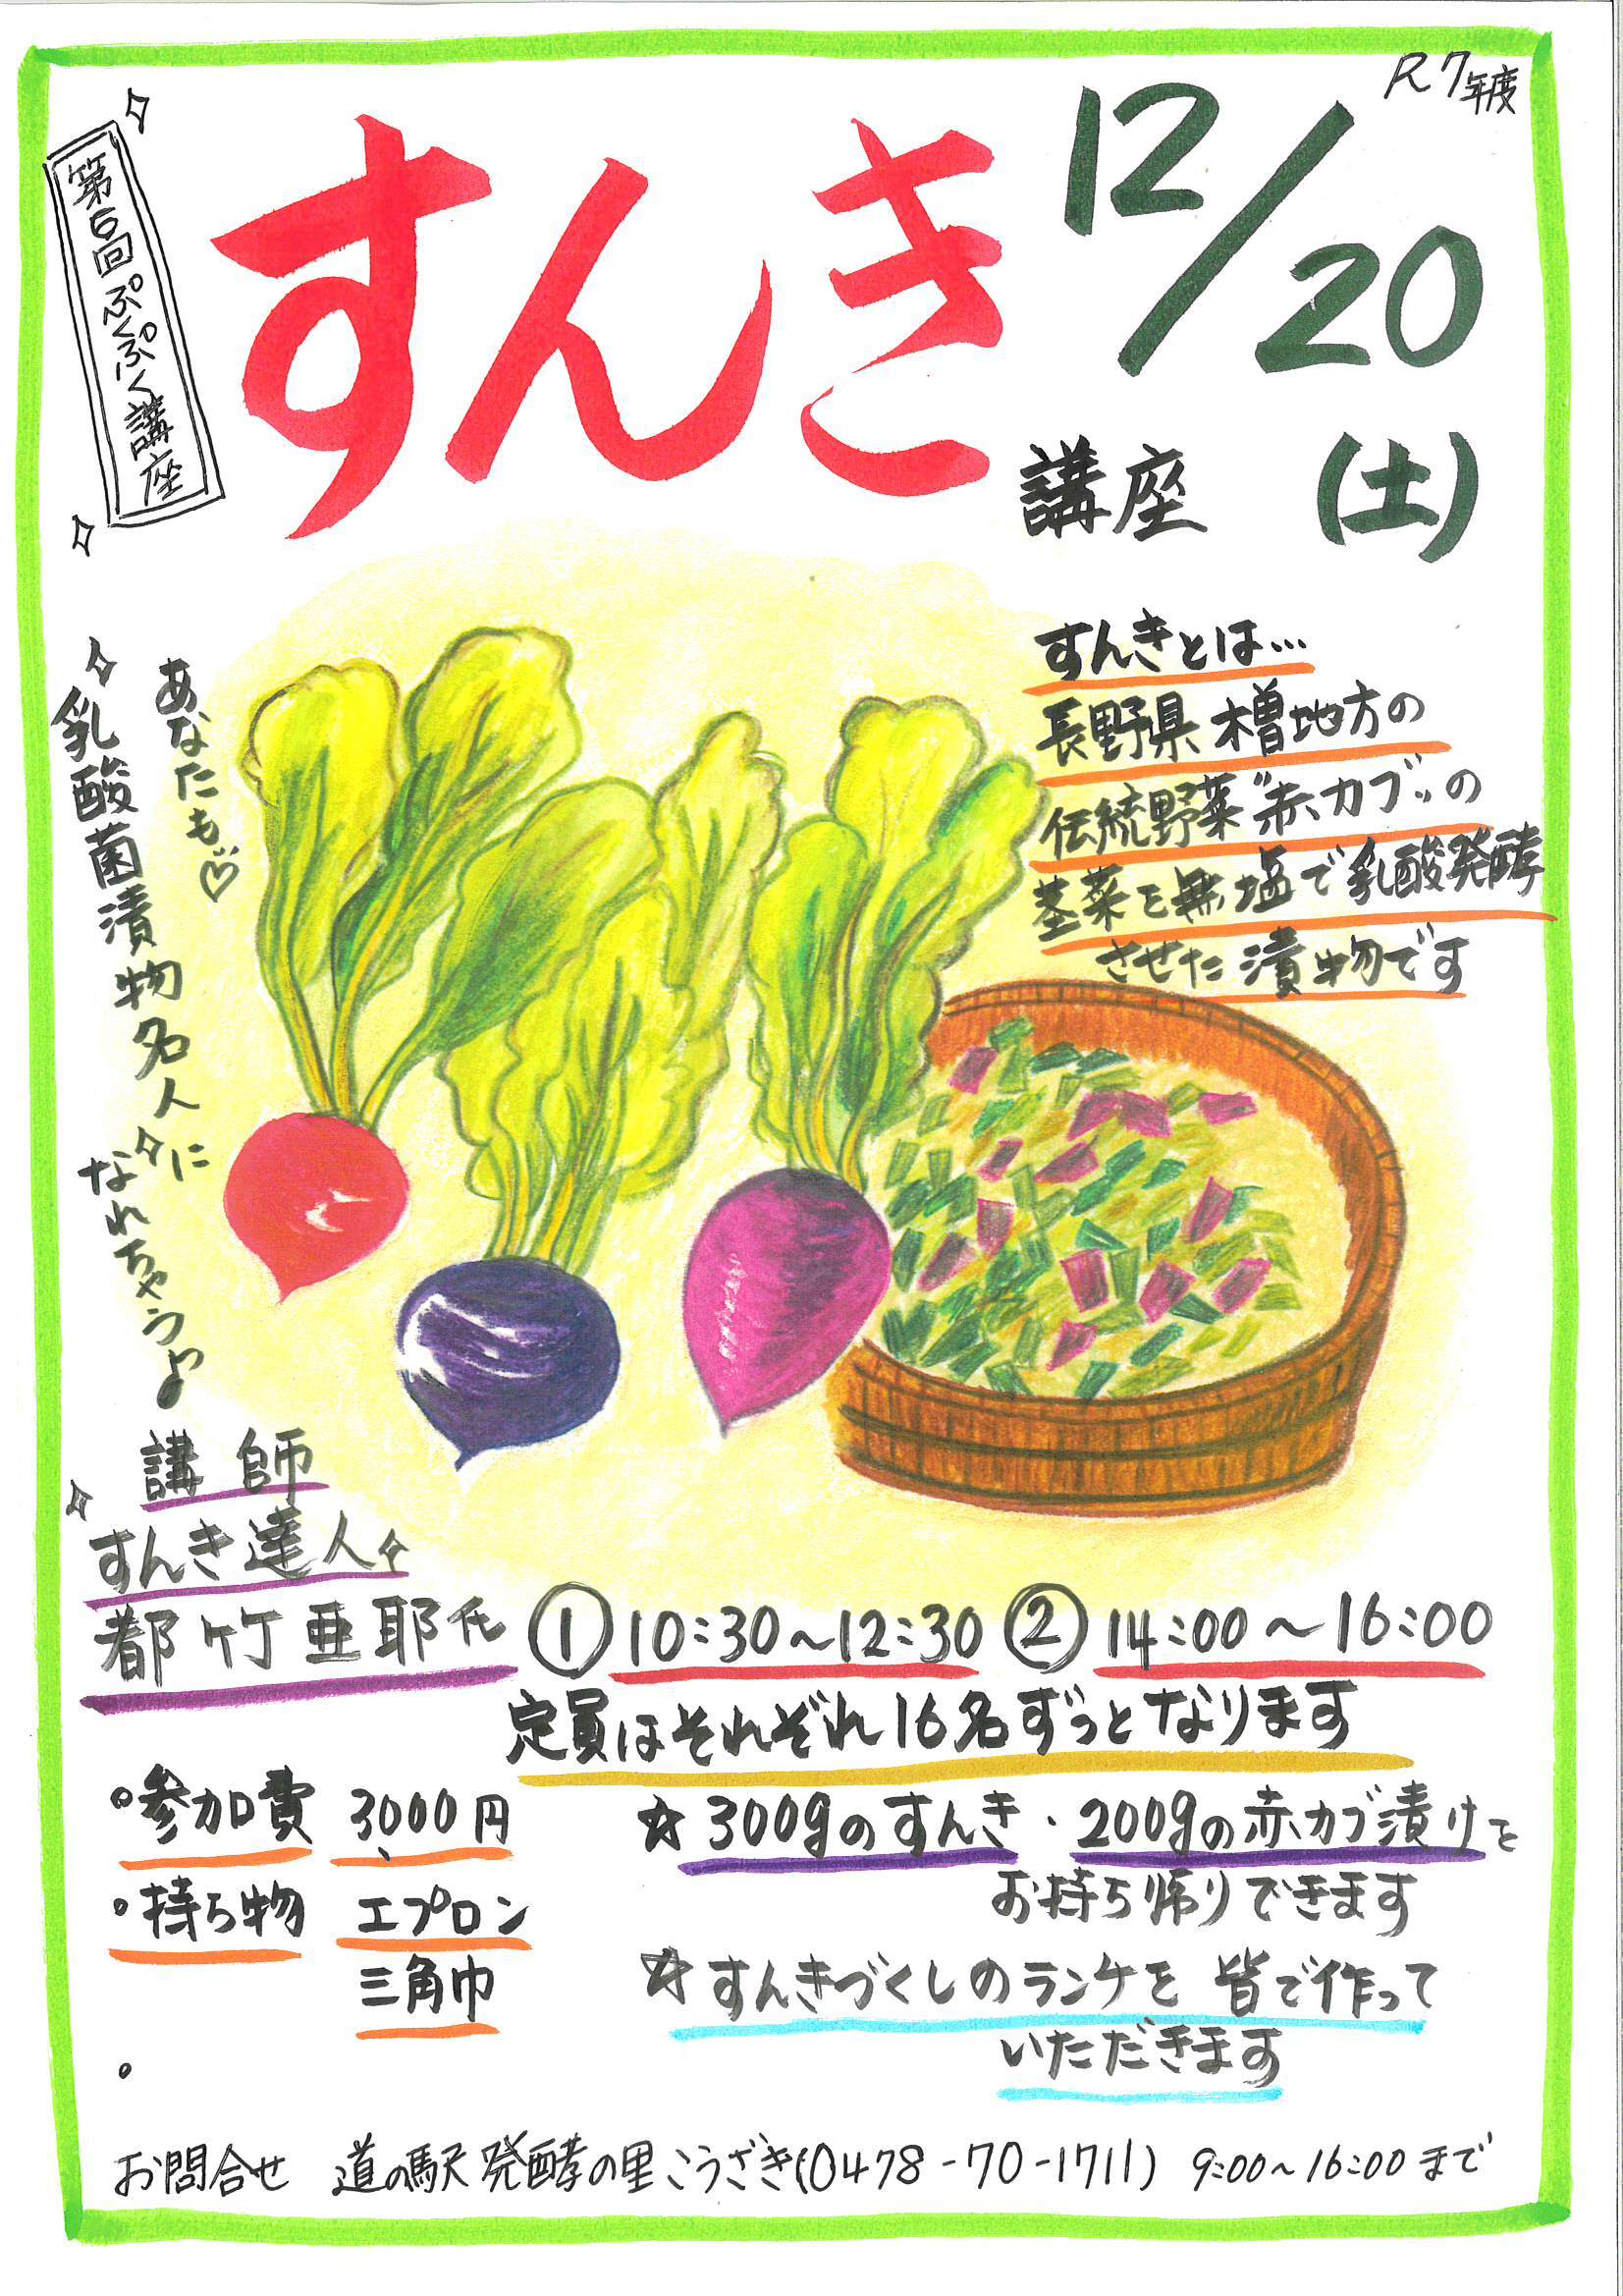 R7年度
第5回ぷくぷく講座
すんき
講座
12/20
(土)
すんきとは…
長野県木曽地方の
伝統野菜"赤カブ"の
茎菜を無塩で乳酸発酵
させた漬物です
あなたも♡
乳酸菌漬物名人に
なれちゃうよ
講師
すんき達人
都竹亜耶氏
①10:30~12:30 ②14:00~16:00
定員はそれぞれ16名ずつとなります
・参加費 3,000円
・持ち物 エプロン
三角巾
☆300gのすんき・200gの赤カブ漬けを
お持ち帰りできます
☆すんきづくしのランチを皆で作って
いただきます
お問合せ 道の駅発酵の里こうざき(0478-70-1711) 9:00~16:00まで